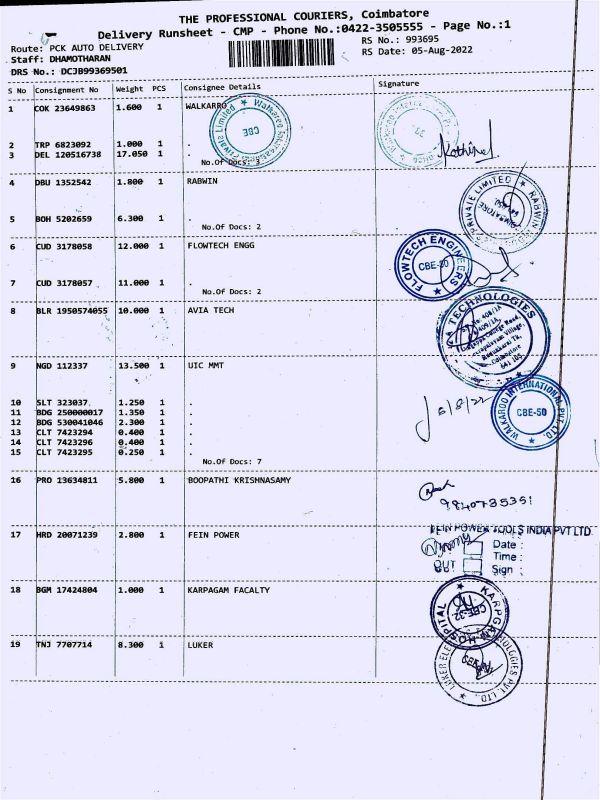 THE PROFESSIONAL COURIERS, Coimbatore
Delivery Runsheet - CMP - Phone No.:0422-3505555 - Page No.:1
Route: PCK AUTO DELIVERY
RS No.: 993695
Staff: DHAMOTHARAN
RS Date: 05-Aug-2022
DRS No.: DCJB99369501
S No Consignment No Weight PCS Consignee Details Signature
1 COK 23649863 1.600 1 WALKARRO
CBE
2 TRP 6823092 1.000 1 .
3 DEL 120516738 17.050 1 .
No.Of Docs: 3
4 DBU 1352542 1.800 1 RABWIN
RABWIN PRIVATE LIMITED
5 BOH 5202659 6.300 1 .
No.Of Docs: 2
6 CUD 3178058 12.000 1 FLOWTECH ENGG
FLOWTECH ENGINEERS
CBE-20
7 CUD 3178057 11.000 1 .
No.Of Docs: 2
8 BLR 1950574055 10.000 1 AVIA TECH
TECHNOLOGIES
9 NGD 112337 13.500 1 UIC MMT
10 SLT 323037 1.250 1 .
11 BDG 250000017 1.350 1 .
12 BDG 530041046 2.300 1 .
13 CLT 7423294 0.400 1 .
14 CLT 7423296 0.400 1 .
15 CLT 7423295 0.250 1 .
No.Of Docs: 7
WALKAROO INTERNATIONAL PVT. LTD.
CBE-50
16 PRO 13634811 5.800 1 BOOPATHI KRISHNASAMY
9840735351
17 HRD 20071239 2.800 1 FEIN POWER
FEIN POWER TOOLS INDIA PVT LTD
Date :
Time :
OUT Sign :
18 BGM 17424804 1.000 1 KARPAGAM FACALTY
HOSPITAL
CBE-32
19 TNJ 7707714 8.300 1 LUKER